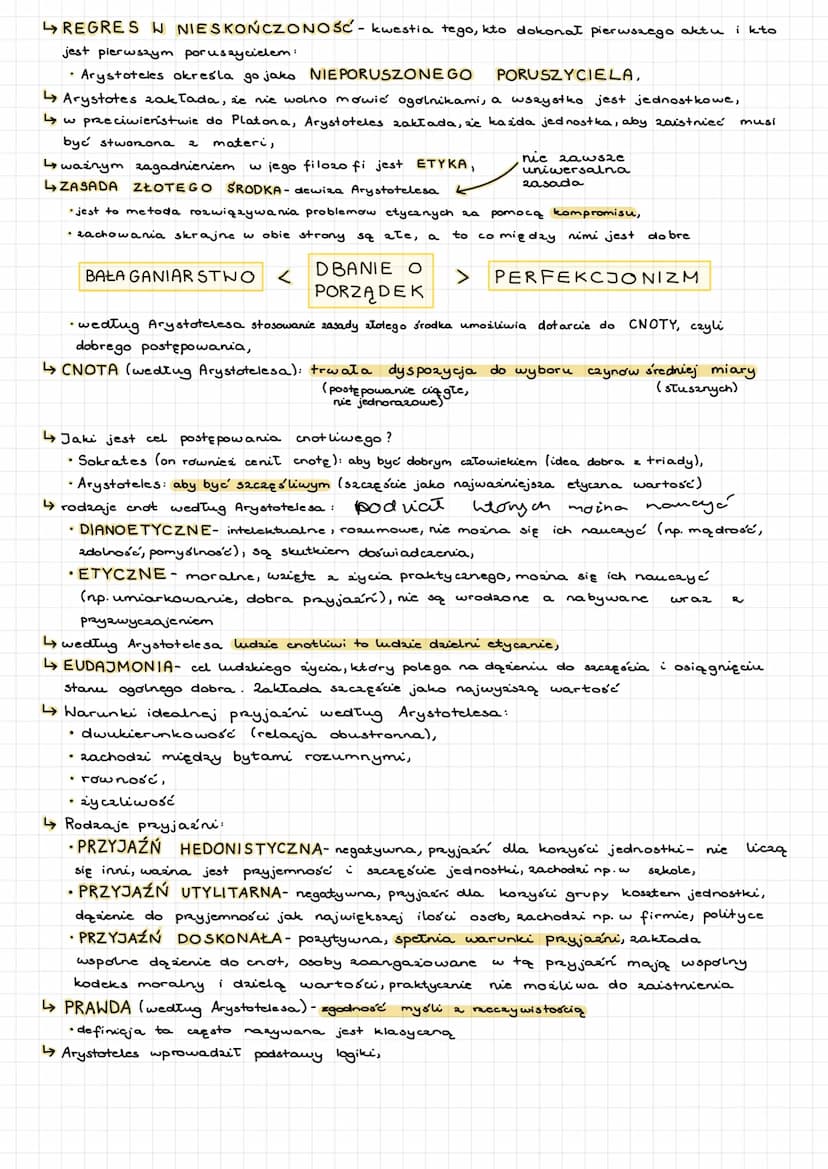 ↳ REGRES W NIESKOŃCZONOŚĆ - kwestia tego, kto dokonał pierwszego aktu i kto
jest pierwszym poruszycielem:
• Arystoteles określa go jako NIEPORUSZONEGO PORUSZYCIELA,
↳ Arystotes zakłada, że nie wolno mówić ogólnikami, a wszystko jest jednostkowe,
↳ w przeciwieństwie do Platona, Arystoteles zakłada, że każda jednostka, aby zaistnieć musi
być stworzona z materi,
↳ ważnym zagadnieniem w jego filozofi jest ETYKA,
nie zawsze
uniwersalna
zasada
↳ ZASADA ZŁOTEGO ŚRODKA - dewiza Arystotelesa
• jest to metoda rozwiązywania problemów etycznych za pomocą kompromisu,
• zachowania skrajne w obie strony są złe, a to co między nimi jest dobre
BAŁAGANIARSTWO < DBANIE O PORZĄDEK > PERFEKCJONIZM
• według Arystotelesa stosowanie zasady złotego środka umożliwia dotarcie do CNOTY, czyli
dobrego postępowania,
↳ CNOTA (według Arystotelesa): trwała dyspozycja do wyboru czynów średniej miary
(postępowanie ciągłe, (słusznych)
nie jednorazowe)
↳ Jaki jest cel postępowania cnotliwego?
• Sokrates (on również cenił cnotę): aby być dobrym człowiekiem (idea dobra z triady),
• Arystoteles: aby być szczęśliwym (szczęście jako najważniejsza etyczna wartość)
↳ rodzaje cnot według Arystotelesa: podział których można nauczyć
• DIANOETYCZNE - intelektualne, rozumowe, nie można się ich nauczyć (np. mądrość,
zdolność, pomyślność), są skutkiem doświadczenia,
• ETYCZNE - moralne, wzięte z życia praktycznego, można się ich nauczyć
(np. umiarkowanie, dobra przyjaźń), nie są wrodzone a nabywane wraz z
przyzwyczajeniem
↳ według Arystotelesa ludzie cnotliwi to ludzie dzielni etycznie,
↳ EUDAJMONIA - cel ludzkiego życia, który polega na dążeniu do szczęścia i osiągnięciu
stanu ogólnego dobra. Zakłada szczęście jako najwyższą wartość
↳ Warunki idealnej przyjaźni według Arystotelesa:
• dwukierunkowość (relacja obustronna),
• zachodzi między bytami rozumnymi,
• równość,
• życzliwość
↳ Rodzaje przyjaźni:
• PRZYJAŹŃ HEDONISTYCZNA - negatywna, przyjaźń dla korzyści jednostki - nie liczą
się inni, ważna jest przyjemność i szczęście jednostki, zachodzi np. w szkole,
• PRZYJAŹŃ UTYLITARNA - negatywna, przyjaźń dla korzyści grupy kosztem jednostki,
dążenie do przyjemności jak największej ilości osób, zachodzi np. w firmie, polityce
• PRZYJAŹŃ DOSKONAŁA - pozytywna, spełnia warunki przyjaźni, zakłada
wspólne dążenie do cnot, osoby zaangażowane w tą przyjaźń mają wspólny
kodeks moralny i dzielą wartości, praktycznie nie możliwa do zaistnienia
↳ PRAWDA (według Arystotelesa) - zgodność myśli z rzeczywistością
• definicja ta często nazywana jest klasyczną
↳ Arystoteles wprowadził podstawy logiki,